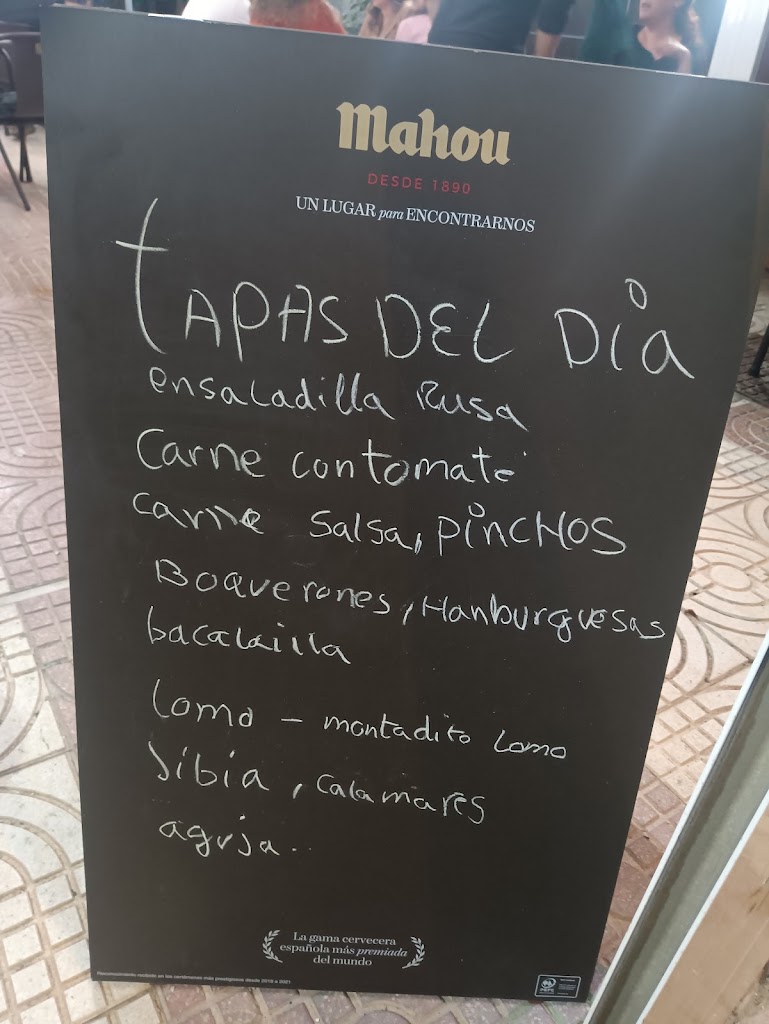 Mahou
DESDE 1890
UN LUGAR para ENCONTRARNOS
tAPAS DEL Dia
ensaladilla Rusa
Carne con tomate
carne salsa, pinchos
Boquerones, Hanburguesas
bacalailla
Lomo - montadito lomo
Jibia, calamares
aguja..
La gama cervecera
española más premiada
del mundo